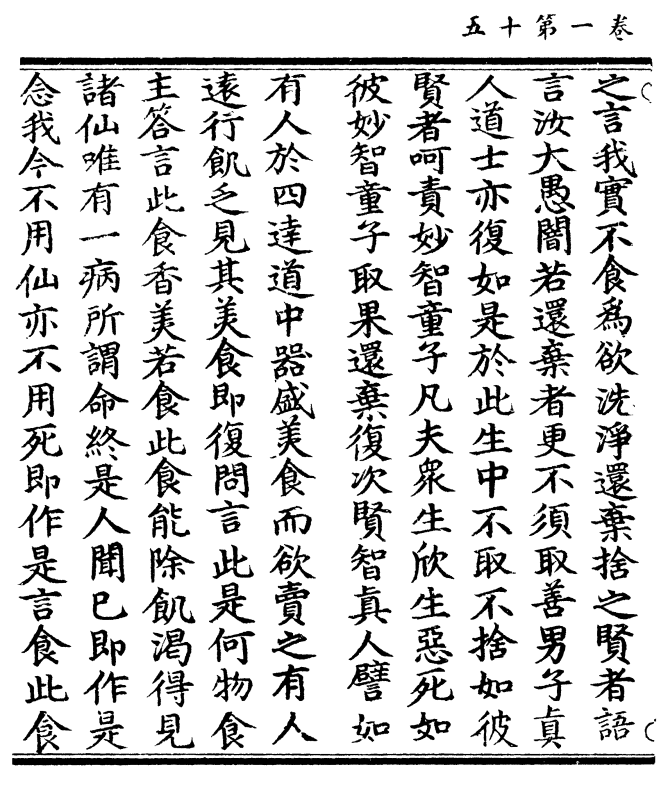 卷一第十五
之言我實不食爲欲洗淨還棄捨之賢者語
言汝大愚闇若還棄者更不須取善男子眞
人道士亦復如是於此生中不取不捨如彼
賢者呵責妙智童子凡夫衆生欣生惡死如
彼妙智童子取果還棄復次賢智眞人譬如
有人於四達道中器盛美食而欲賣之有人
遠行飢乏見其美食即復問言此是何物食
主答言此食香美若食此食能除飢渴得見
諸仙唯有一病所謂命終是人聞已即作是
念我今不用仙亦不用死即作是言食此食